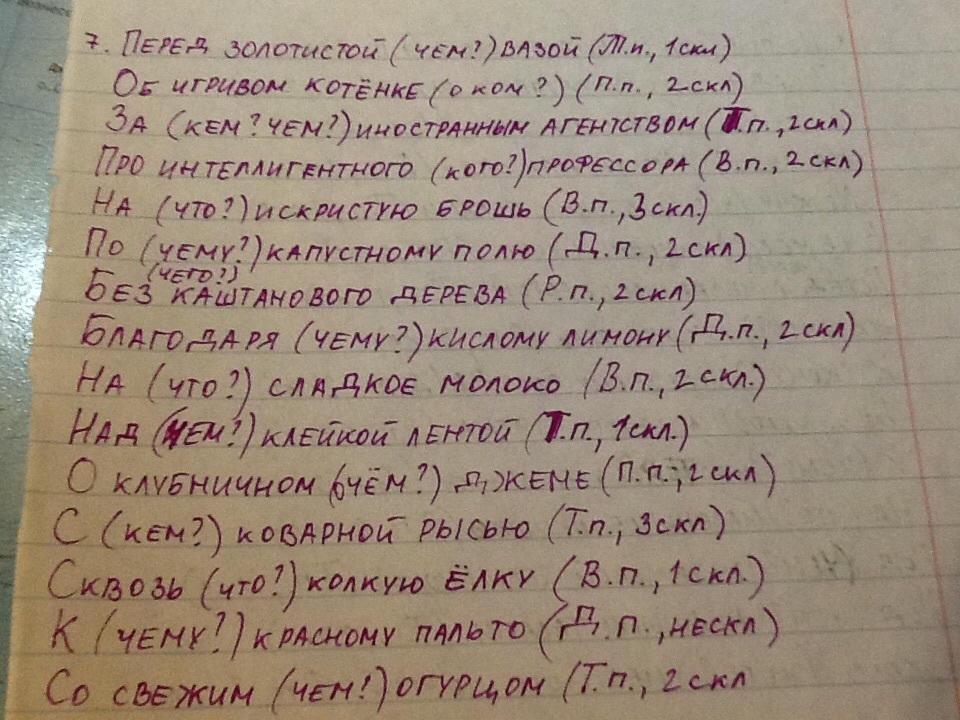 7. ПЕРЕД ЗОЛОТИСТОЙ (ЧЕМ?) ВАЗОЙ (Т.п., 1скл)
ОБ ИГРИВОМ КОТЁНКЕ (О КОМ?) (П.п., 2скл)
ЗА (КЕМ? ЧЕМ?) ИНОСТРАННЫМ АГЕНТСТВОМ (Т.п., 2скл)
ПРО ИНТЕЛЛИГЕНТНОГО (КОГО?) ПРОФЕССОРА (В.п., 2скл)
НА (ЧТО?) ИСКРИСТУЮ БРОШЬ (В.п., 3скл.)
ПО (ЧЕМУ?) КАПУСТНОМУ ПОЛЮ (Д.п., 2скл)
(ЧЕГО?)
БЕЗ КАШТАНОВОГО ДЕРЕВА (Р.п., 2скл)
БЛАГОДАРЯ (ЧЕМУ?) КИСЛОМУ ЛИМОНУ (Д.п., 2скл)
НА (ЧТО?) СЛАДКОЕ МОЛОКО (В.п., 2скл.)
НАД (ЧЕМ?) КЛЕЙКОЙ ЛЕНТОЙ (Т.п., 1скл.)
О КЛУБНИЧНОМ (О ЧЁМ?) ДЖЕМЕ (П.п., 2скл)
С (КЕМ?) КОВАРНОЙ РЫСЬЮ (Т.п., 3скл)
СКВОЗЬ (ЧТО?) КОЛКУЮ ЁЛКУ (В.п., 1скл.)
К (ЧЕМУ?) КРАСНОМУ ПАЛЬТО (Д.п., нескл)
СО СВЕЖИМ (ЧЕМ!) ОГУРЦОМ (Т.п., 2скл